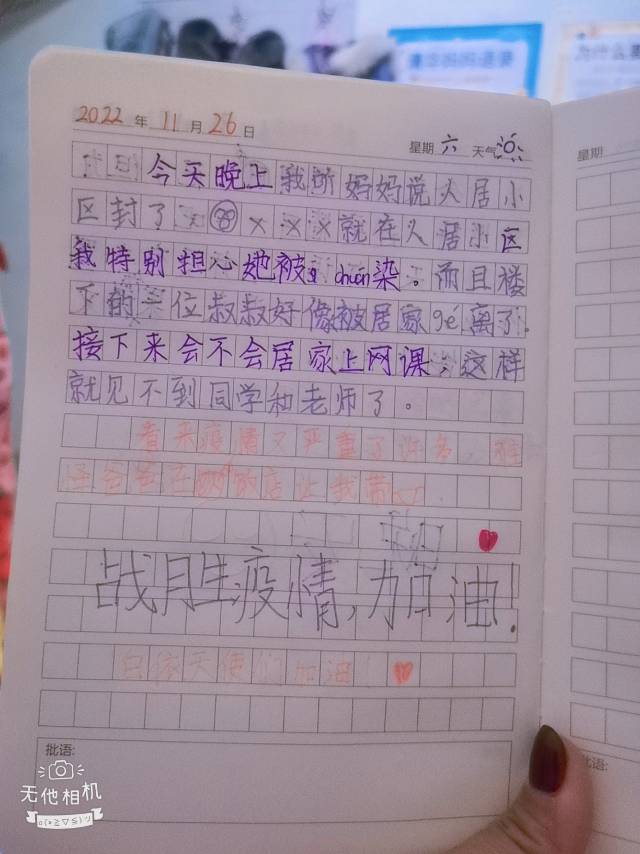 2022年11月26日 星期六 天气
今天晚上我听妈妈说人居小
区封了 就在人居小区
我特别担心她被chuán染。而且楼
下的一位叔叔好像被居家gé离了。
接下来会不会居家上网课,这样
就见不到同学和老师了。
看来疫情又严重了许多,难
怪爸爸在 饭店让我带
战胜疫情,加油!
白衣天使们加油!
批语:
无他相机
星期
批语:
为什么